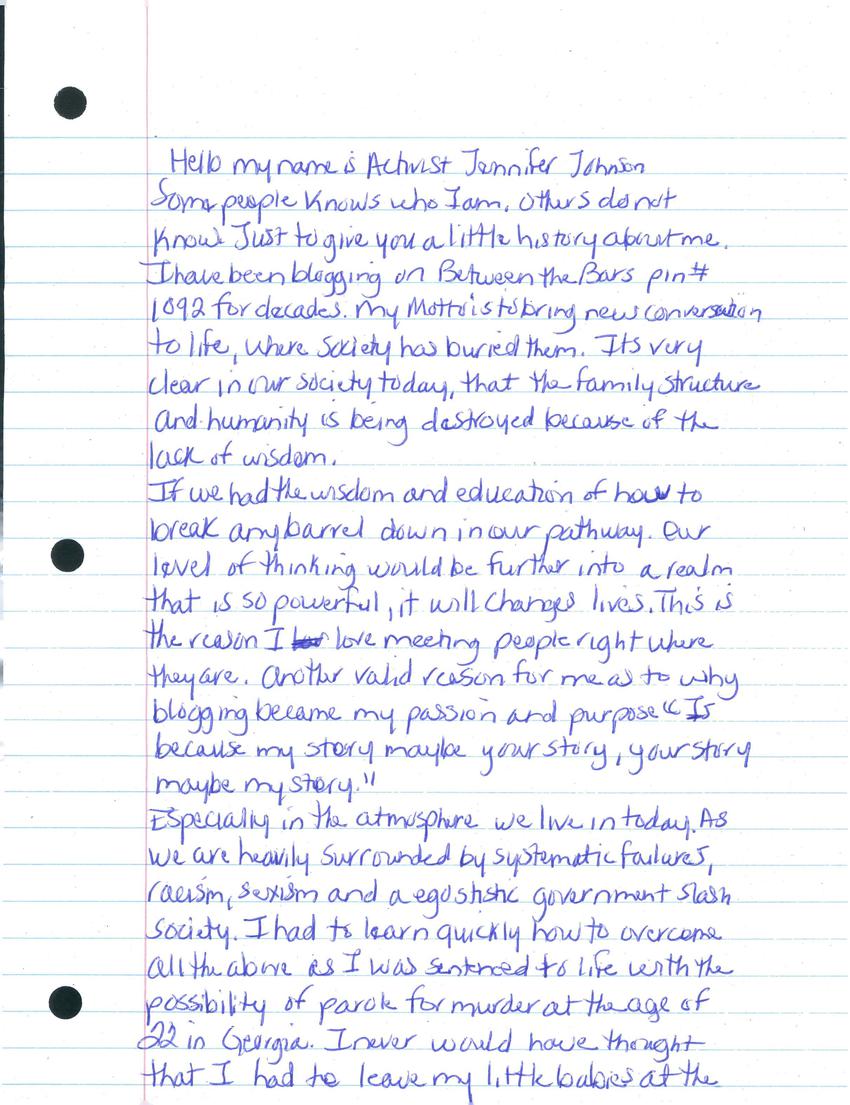 Hello my name is Activist Jennifer Johnson
Some people Knows who I am, others do not
Know. Just to give you a little history about me.
I have been blogging on Between the Bars pin#
1092 for decades. My Motto is to bring new conversation
to life, where society has buried them. Its very
clear in our society today, that the family structure
and humanity is being destroyed because of the
lack of wisdom.
If we had the wisdom and education of how to
break any barrel down in our pathway. Our
level of thinking would be further into a realm
that is so powerful, it will changes lives. This is
the reason I love meeting people right where
they are. Another valid reason for me as to why
blogging became my passion and purpose "Is
because my story maybe your story, your story
maybe my story."
Especially in the atmosphere we live in today. As
we are heavily surrounded by systematic failures,
racism, sexism and a egostistic government slash
society. I had to learn quickly how to overcome
all the above as I was sentenced to life with the
possibility of parole for murder at the age of
22 in Georgia. I never would have thought
that I had to leave my little babies at the